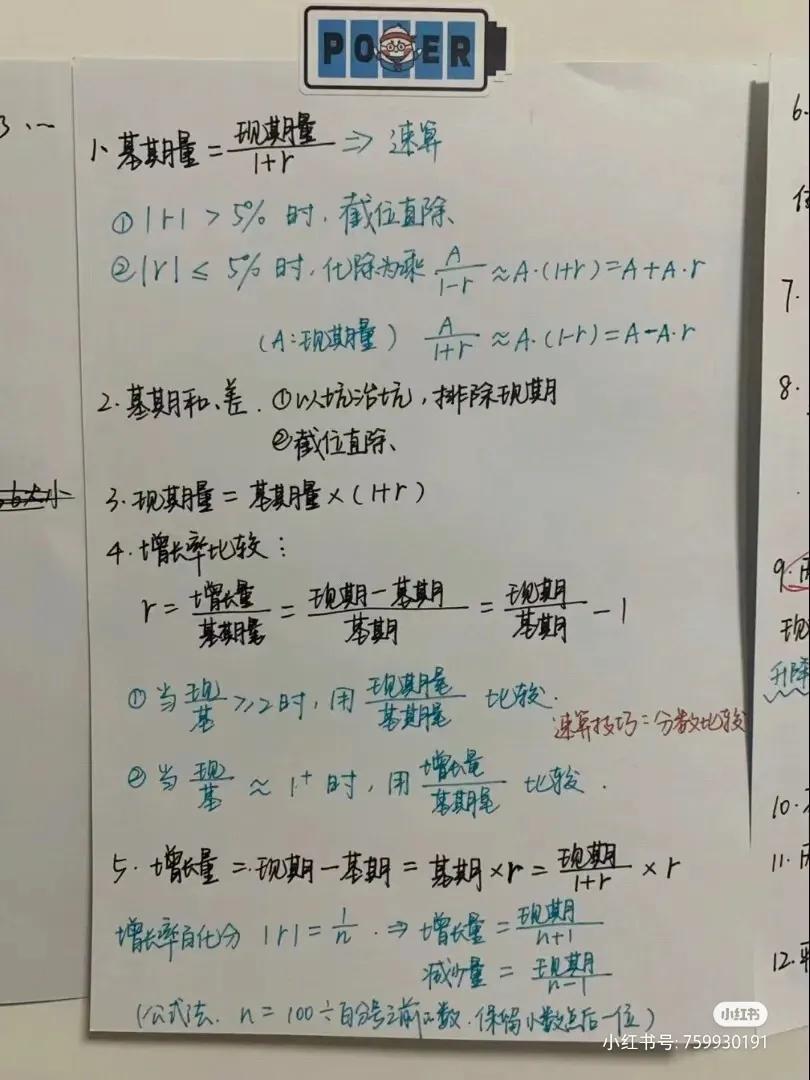 POWER
1. 基期量 = 现期量/(1+r) ⇒ 速算
① |r| > 5% 时, 截位直除、
② |r| ≤ 5% 时, 化除为乘 A/(1-r) ≈ A·(1+r) = A + A·r
(A:现期量) A/(1+r) ≈ A·(1-r) = A - A·r
2. 基期和、差. ① 以坑治坑, 排除现期
② 截位直除、
3. 现期量 = 基期量 × (1+r)
4. 增长率比较:
r = 增长量/基期量 = (现期-基期)/基期 = 现期/基期 - 1
① 当 现/基 ≥ 2 时, 用 现期量/基期量 比较.
速算技巧=分数比较
② 当 现/基 ≈ 1⁺ 时, 用 增长量/基期量 比较.
5. 增长量 = 现期-基期 = 基期×r = 现期/(1+r) × r
增长率百化分 |r| = 1/n. ⇒ 增长量 = 现期/(n+1)
减少量 = 现期/(n-1)
(公式法. n = 100÷百分号之前的数. 保留小数点后一位)
大小
6.
7.
8.
9.
现
升降
10.
11.
12.
小红书
小红书号: 759930191